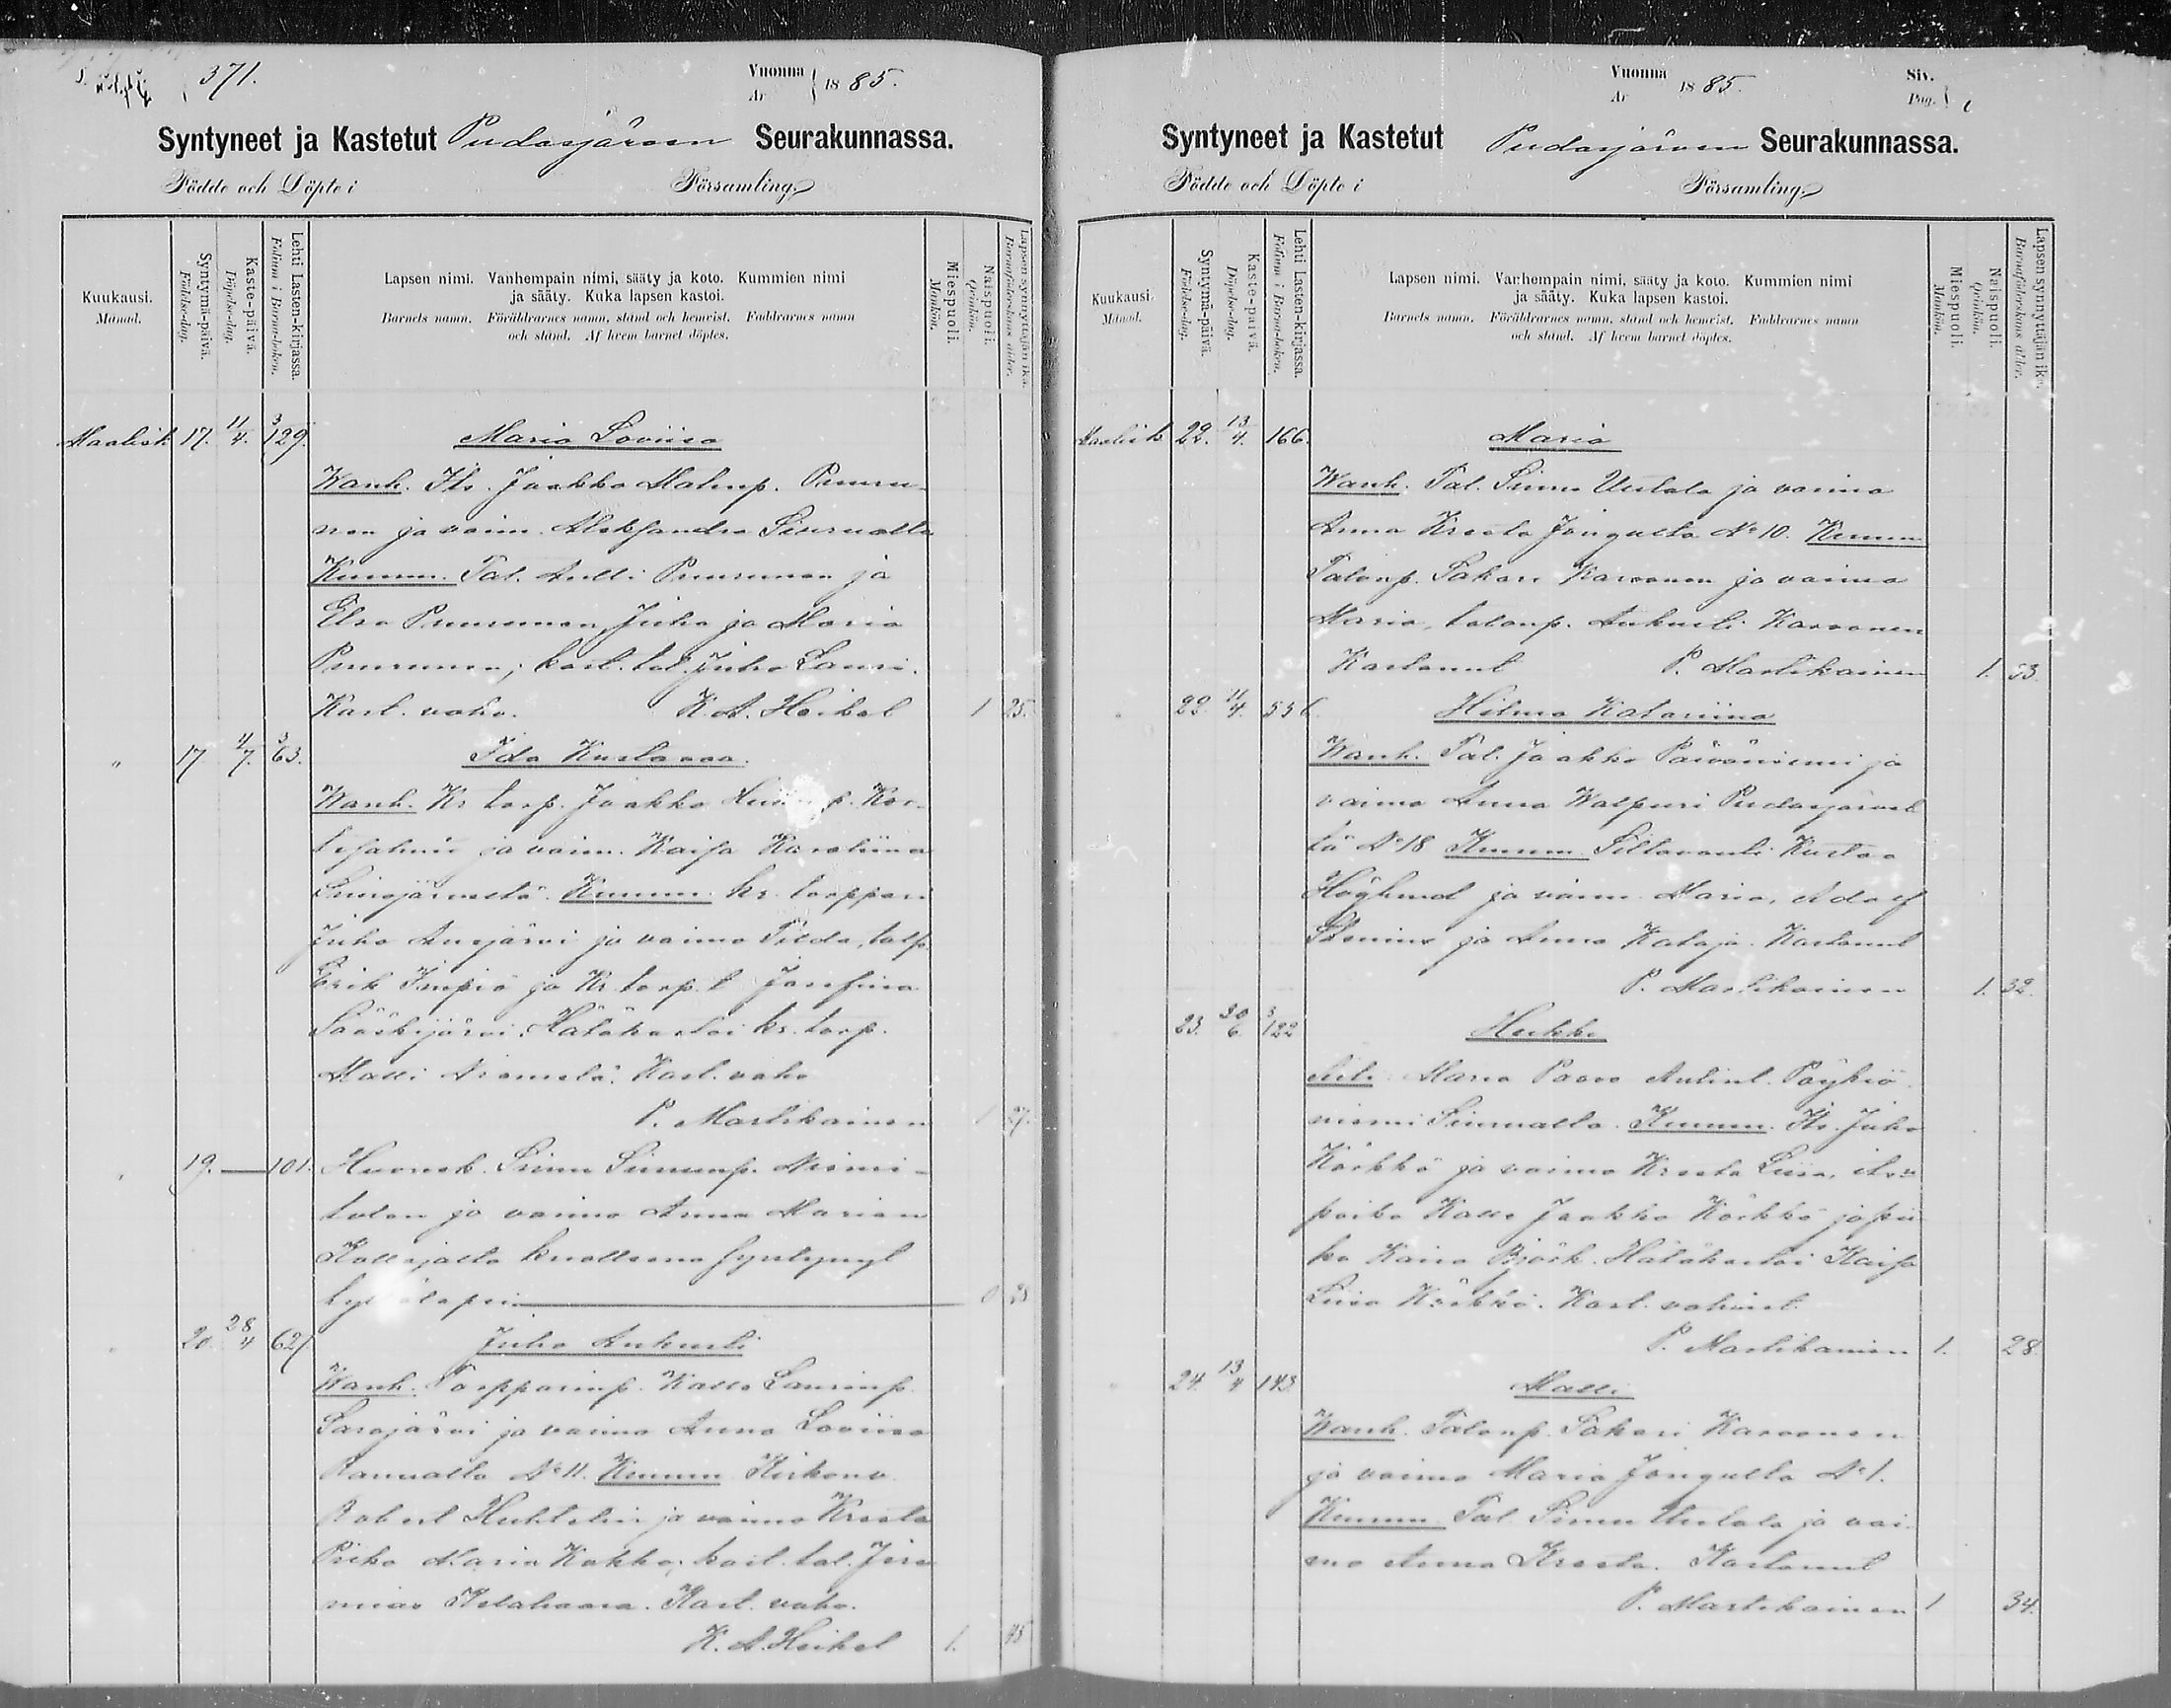 371.
Vuonna
År } 18 85.
Syntyneet ja Kastetut Pudasjärven Seurakunnassa.
Födde och Döpte i Församling.
Kuukausi.
Månad.
Syntymä-päivä.
Födelse-dag.
Kaste-päivä.
Döpelse-dag.
Lehti Lasten-kirjassa.
Folium i Barna-boken.
Lapsen nimi. Vanhempain nimi, sääty ja koto. Kummien nimi
ja sääty. Kuka lapsen kastoi.
Barnets namn. Föräldrarnes namn, stånd och hemvist. Faddrarnes namn
och stånd. Af hvem barnet döptes.
Miespuoli.
Mankön.
Naispuoli.
Qvinkön.
Lapsen synnyttäjän ikä.
Barnaföderskans ålder.
Maalisk 17. 11/4. 3/129. Maria Loviisa
Wanh. Its. Jaakko Matinp. Puuru-
nen ja vaim. Aleksandra Siurualta
Kumm. Tal. Antti Puurunen ja
Elsa Puurunen, Juho ja Maria
Puurunen; kast. tal. Juho Lauri.
Kast. vahv. K. A. Heikel 1 25.
" 17 4/7. 3/63. Ida Kustaava.
Wanh. Kr. torp. Jaakko p. Kor-
ja vaim. Kaisa Karoliina
Kumm. kr. torppari
Juho Auojärvi ja vaimo Tilda, talp.
Erik Impiö ja Kr. torp. t. Josefina
Sääskijärvi. Hätäkastoi kr. torp.
Matti Niemelä. Kast. vahv.
P. Martikainen 1 27.
" 19. — 101. Huonek. Simo Simonp. Niemi-
talon ja vaimo Anna Marian
Kollajalta kuolleena syntynyt
0
" 20. 28/4 627. Juho Aukusti
Wanh. Torpparinp. Kalle Laurinp.
Sarajärvi ja vaimo Anna Loviisa
Ranualta No 11. Kumm. Kirkonv.
Robert Huhtelin ja vaimo Kreeta
Piika Maria Kokko; kast. tal. Jere-
mias Kelahaara. Kast. vahv.
K. A. Heikel 1. 45
Vuonna
År 18 85.
Siv.
Pag.
Syntyneet ja Kastetut Pudasjärven Seurakunnassa.
Födde och Döpte i Församling.
Kuukausi.
Månad.
Syntymä-päivä.
Födelse-dag.
Kaste-päivä.
Döpelse-dag.
Lehti Lasten-kirjassa.
Folium i Barna-boken.
Lapsen nimi. Vanhempain nimi, sääty ja koto. Kummien nimi
ja sääty. Kuka lapsen kastoi.
Barnets namn. Föräldrarnes namn, stånd och hemvist. Faddrarnes namn
och stånd. Af hvem barnet döptes.
Miespuoli.
Mankön.
Naispuoli.
Qvinkön.
Lapsen synnyttäjän ikä.
Barnaföderskans ålder.
Maalisk 22. 13/4. 166. Maria
Wanh. Tal. Simo Uutala ja vaimo
Anna Kreeta Jongulta No 10. Kumm.
Talonp. Sakari Karvonen ja vaimo
Maria, talonp. Aukusti Karvonen
Kastanut P. Martikainen 1. 33.
" 22. 11/4. 536. Hilma Katariina
Wanh. Tal. Jaakko Päiväniemi ja
vaimo Anna Walpuri Pudasjärvel-
tä No 18 Kumm. Siltavouti Kustaa
Höglund ja vaim. Maria, Adolf
ja Anna Kataja. Kastanut
P. Martikainen 1. 32.
23. 20/6. 3/122 Heikki
Äiti. Maria Paavo Antint. Pöykiö-
niemi Siurualta. Kumm. Its. Juho
Körkkö ja vaimo Kreeta Liisa, its.
poika Kalle Jaakko Körkkö ja pii-
ka Kaisa Björk. Hätäkastoi Kaisa
Liisa Körkkö. Kast. vahvist.
P. Martikainen 1. 28.
" 24. 13/4 143. Matti
Wanh. Talonp. Sakari Karvonen
ja vaimo Maria Jongulta No 1.
Kumm. Tal. Simo Uutala ja vai-
mo Anna Kreeta. Kastanut
P. Martikainen 1 34.